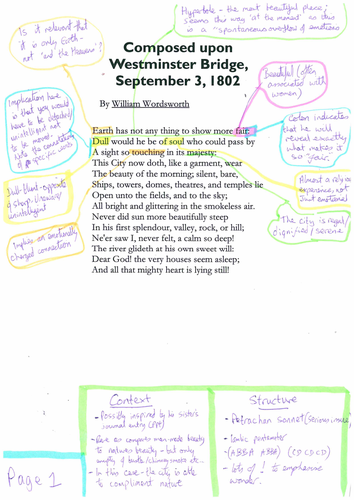 Hyperbole - the most beautiful piece;
seems this way 'at the moment' as this
is a "spontaneous overflow of emotions
Is it relevant that
it is only Earth -
not 'and the Heavens'?
Composed upon
Westminster Bridge,
September 3, 1802
Beautiful (often
associated with
women)
By William Wordsworth
Implication here
is that you would
have to be
unintelligent not
to be moved-
Note the connotations
of specific words
Colon indicates
that he will
reveal exactly
what makes it
so "fair".
Earth has not any thing to show more fair:
Dull would he be of soul who could pass by
A sight so touching in its majesty:
This City now doth, like a garment, wear
The beauty of the morning; silent, bare,
Ships, towers, domes, theatres, and temples lie
Open unto the fields, and to the sky;
All bright and glittering in the smokeless air.
Never did sun more beautifully steep
In his first splendour, valley, rock, or hill;
Ne'er saw I, never felt, a calm so deep!
The river glideth at his own sweet will:
Dear God! the very houses seem asleep;
And all that mighty heart is lying still!
Almost a
experience, not
just emotional
Dull-Blunt-opposite
of sharp-
unintelligent
The City is regal/
dignified/serene
Implies an emotionally
charged connection
Context
- Possibly inspired by his sister's
journal entry
man-made beauty
to natural beauty - but only
smoke etc...
- In this case - the city is able
to compliment nature
Structure
- Petrarchan sonnet (serious issue)
- Iambic pentameter
- (ABBA ABBA) (CDCDCD)
- lots of ! to emphasise
wonder.
Page 1